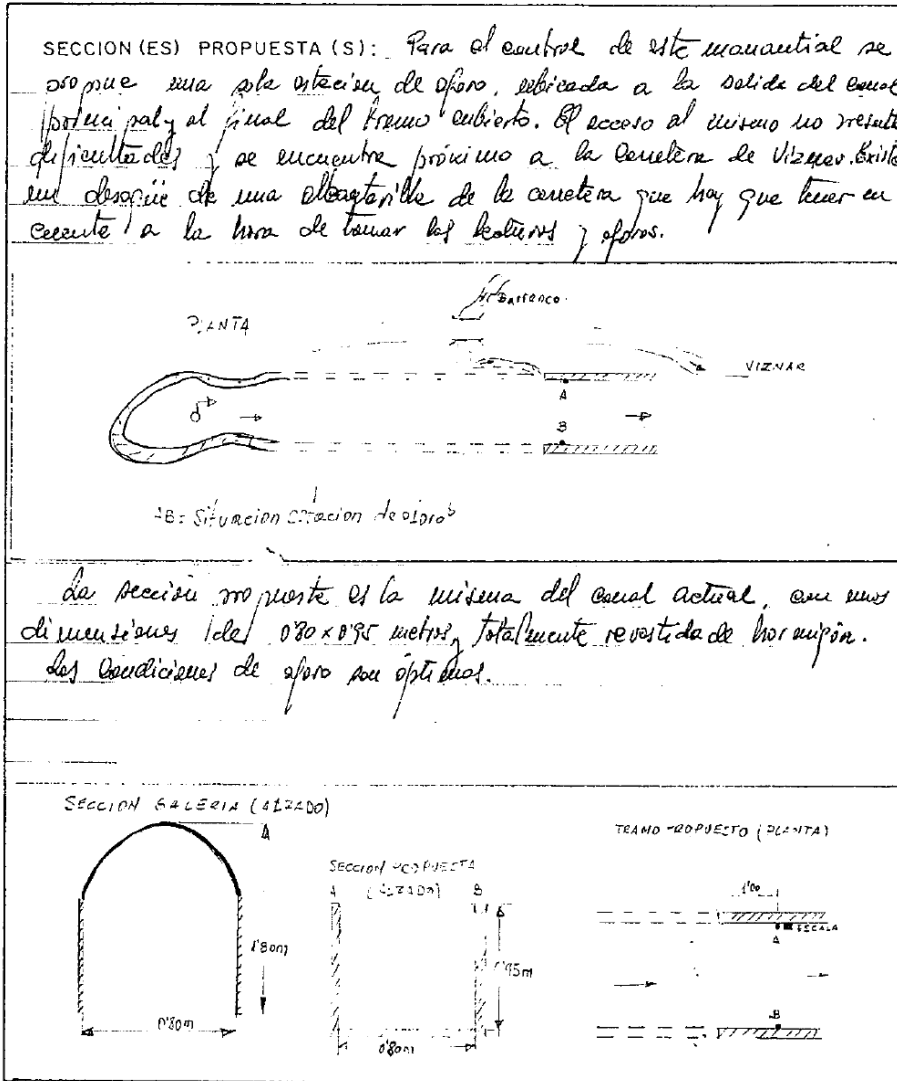 SECCION (ES) PROPUESTA (S): Para el control de este manantial se
propone una sola estación de aforo, ubicada a la salida del canal
principal y al final del tramo cubierto. El acceso al mismo no presenta
dificultades y se encuentra próximo a la carretera de Viznar. Existe
un desagüe de una alcantarilla de la carretera que hay que tener en
cuenta a la hora de tomar las lecturas y aforos.
Barranco
PLANTA
VIZNAR
A
B
AB= Situacion Estacion de aforos
La sección propuesta es la misma del canal actual, con unas
dimensiones de 0'80 x 0'95 metros, totalmente revestida de hormigón.
Las condiciones de aforo son óptimas.
SECCION GALERIA (ALZADO)
TRAMO PROPUESTO (PLANTA)
SECCION PROPUESTA
(ALZADO)
A B
1'00
ESCALA
A
1'80m
0'95m
B
0'80m
0'80m